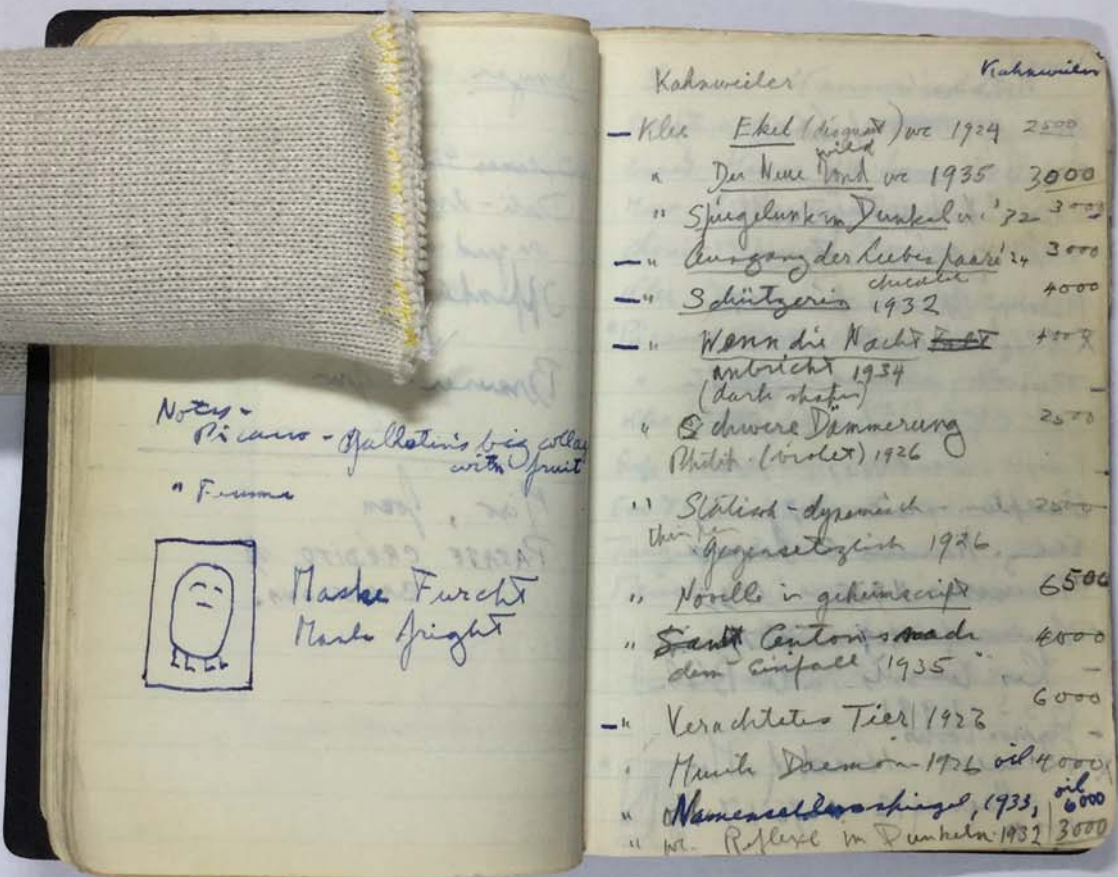 Notes -
Picasso - Gallatin's big collag
with fruit
" Femme
Maske Furcht
Mask fright
Kahnweiler
Kahnweiler
— Klee Ekel (disgust) wc 1924 2500
wild
" Der Neue Mond wc 1935 3000
" Spiegelunk im Dunkel '32 3000
— " Ausgang der Liebespaare '24 3000
— " Schützerin 1932 4000
— " Wenn die Nacht 400
anbricht 1934
(dark shapes)
" Schwere Dämmerung 2500
(violet) 1926
" Statisch - dynamisch 2500
gegensetzlich 1926
" Novelle in geheimscript 6500
" Sankt Anton nach 4000
dem Einfall 1935
— " Verachtetes Tier 1927 6000
" Musik Daemon 1926 oil 4000
" 1933, oil 6000
" wc. Reflexe im Dunkeln 1932 3000